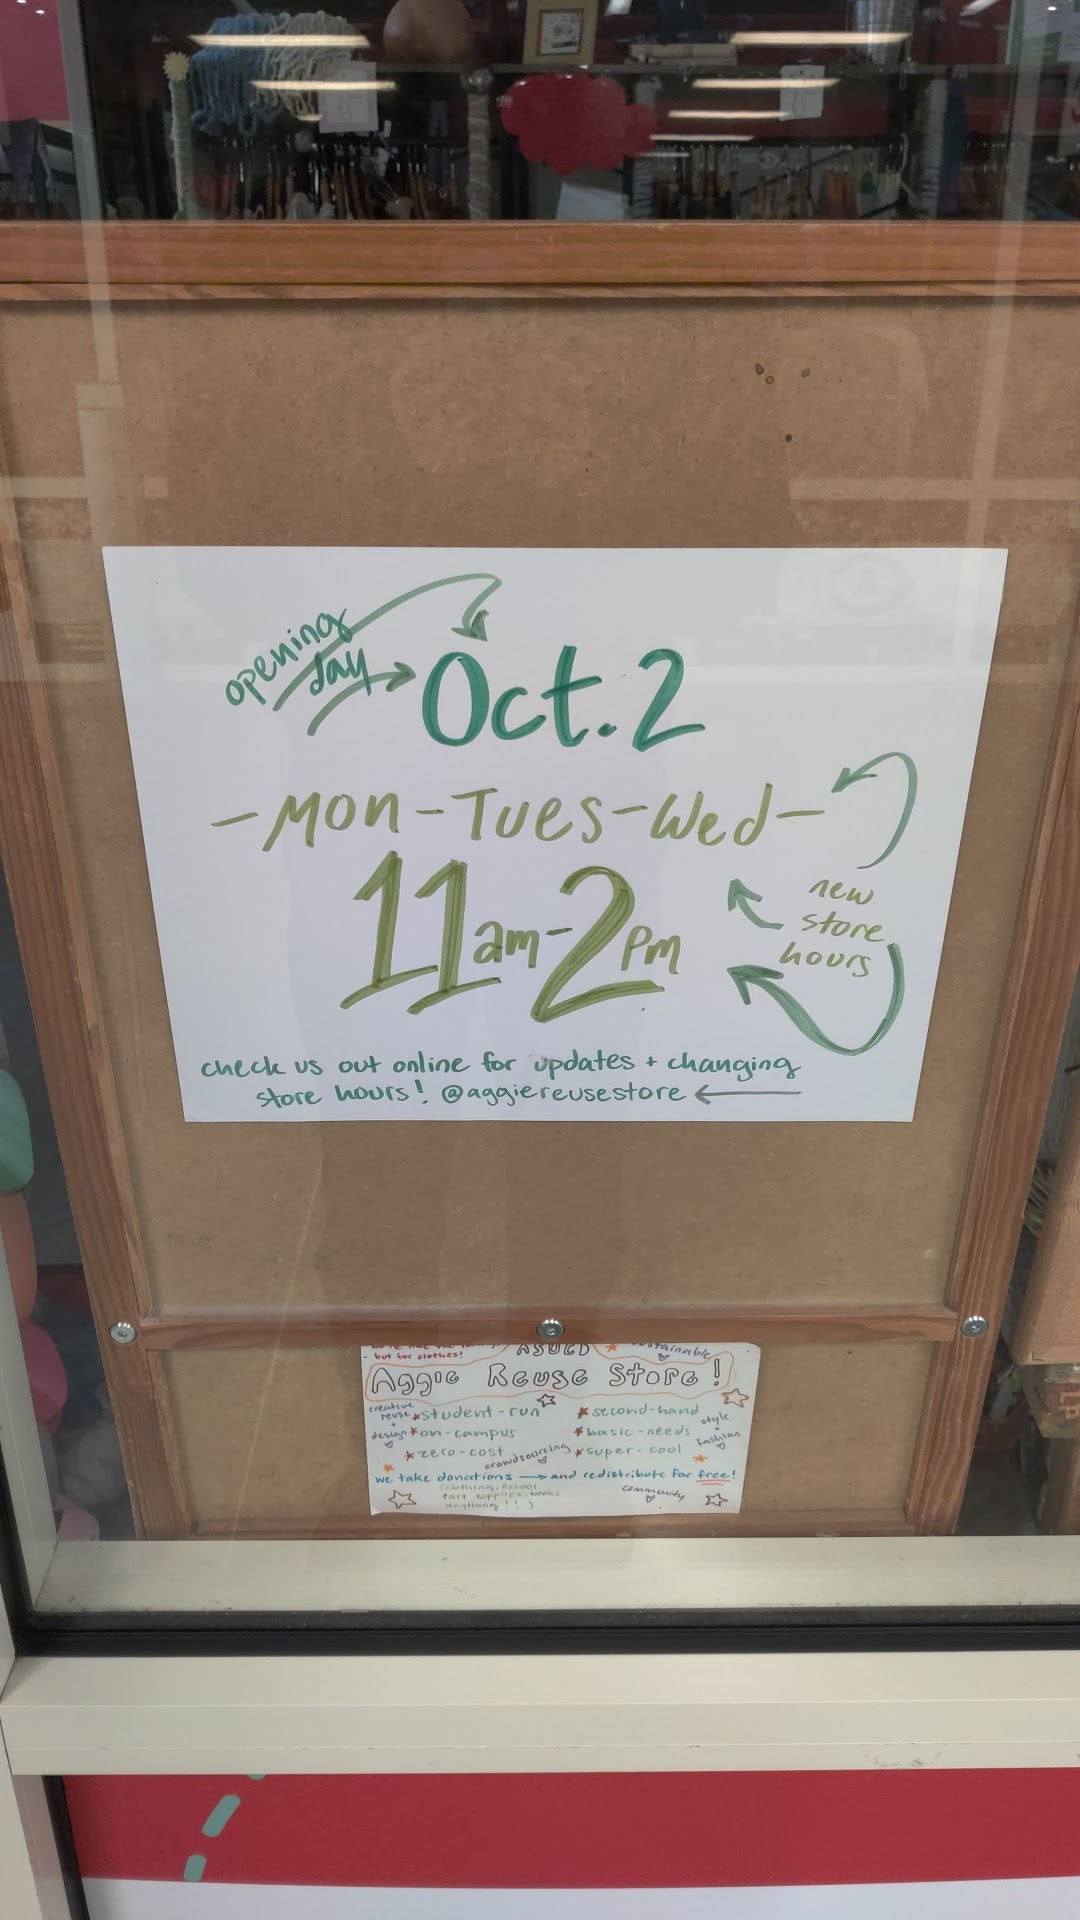 opening
day
Oct. 2
-Mon-Tues-Wed-
11am-2pm
new
store
hours
check us out online for updates + changing
store hours! @aggiereusestore
- but for clothes!
ASUCD
sustainable
Aggie Reuse Store!
creative
reuse
+
design
student-run
on-campus
zero-cost
second-hand
basic-needs
super-cool
style
+
fashion
crowdsourcing
we take donations → and redistribute for free!
(clothing, school
+art supplies, books
anything!!)
community